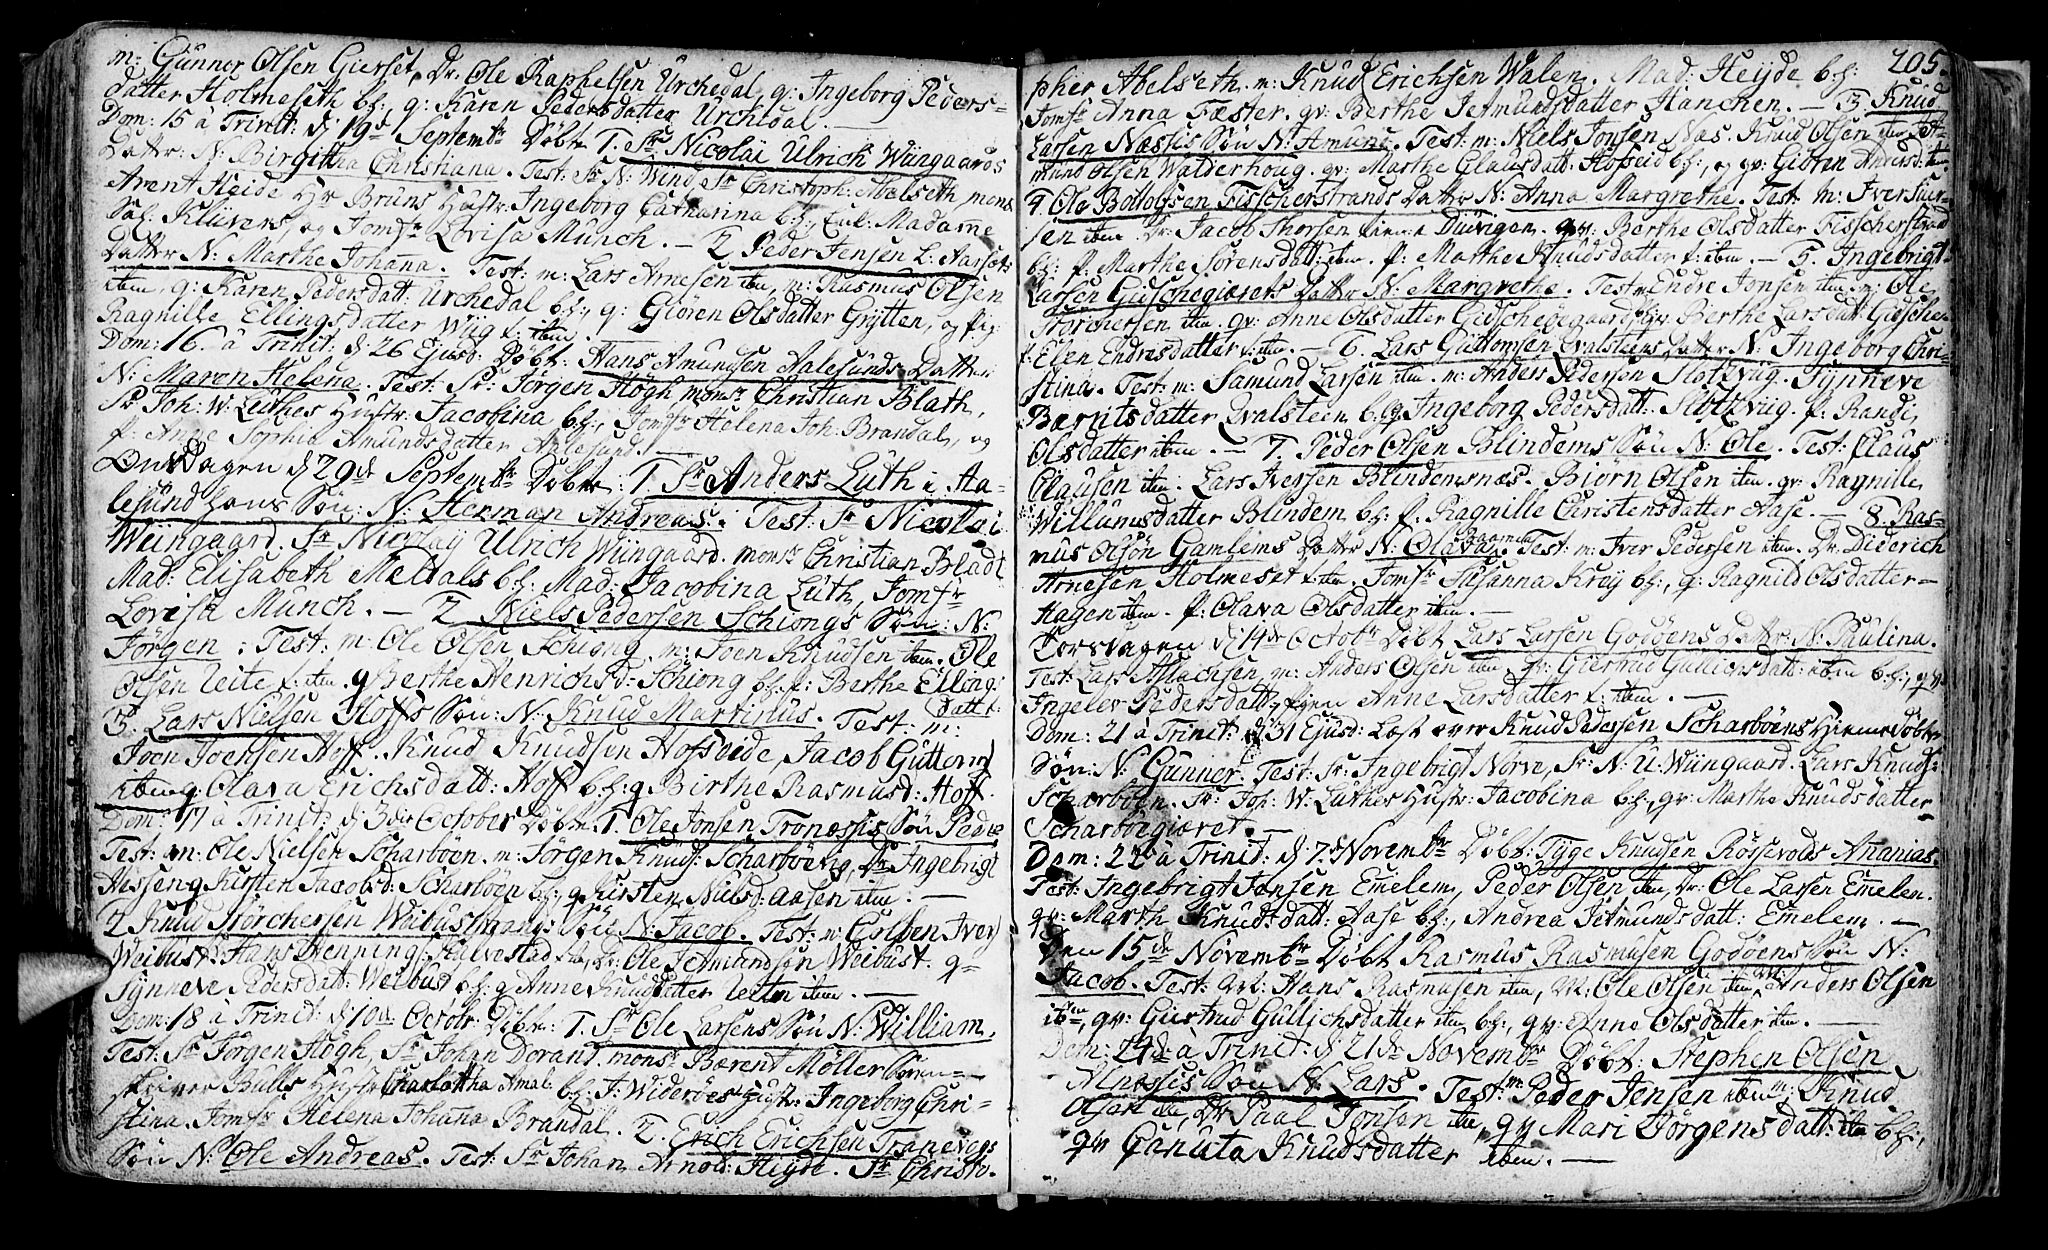 m: Gunner Olsen Gierset, Dr. Ole Raphelsen Urchedal, q: Ingeborg Peders-
datter Holmeseth b:f:, q: Karen Pedersdatter Urchedal. —
Dom: 15 à Trinit: d 19de Septembr Døbt 1. Sr Nicolai Ulrich Wiingaards
Dattr: N: Birgittha Christiana. Test: Sr N: Wind, Sr Christoph: Abelseth, mons
Arent Heide Hr Bruns Hustr: Ingeborg Catharina b:f:, Enk. Madame
Sal: Klüvers, og Jomfr Lovisa Munch. — 2 Peder Jensen L: Aarsets
Datter N: Marthe Johana. Test: m: Lars Arnesen ibm, m: Rasmus Olsen
ibm, q: Karen Pedersdatt: Urchedal b:f:, q: Giøren Olsdatter Grytten, og pig:
Ragnille Ellingsdatter Wiig ibm.
Dom: 16. à Trinit: d 26 Ejusd: Døbt: Hans Amundsen Aalesunds Datter
N: Maren Helena. Test: Sr: Jørgen Høgh, monsr Christian Blath,
Sr Joh: W: Luthes Hustr: Jacobina b:f:, Jomfr Helena Joh: Brandal, og
p: Anne Sophia Amundsdatter Aalesund. —
Onsdagen d 29de Septembr Døbt: 1. Sr Anders Luth i Aa-
lesund hans Søn: N: Herman Andreas: Test: Sr Nicolai
Wiingaard. Sr Nicolaij Ulrich Wiingaard. monsr Christian Bladt
Mad: Elisabeth Meldals b:f: Mad: Jacobina Luth, Jomfr
Lovisa Munch. — 2 Niels Pedersen Schiong's Søn: N:
Jørgen: Test: m: Ole Olsen Schiong, m: Joen Knudsen ibm. Ole
Olsen Leite ibm. q Berthe Henrichsd: Schiong b:f: p: Berthe Ellings
datter
3. Lars Nielsen Hoffs Søn: N: Knud Martinus. Test: m:
Joen Jochsen Hoff. Knud Knudsen Hofseide, Jacob Guttorm
ibm q: Olava Erichsdatt: Hoff b:f: q Birthe Rasmusd: Hoff.
Dom: 17 à Trinit: d 3die October Døbt: 1. Ole Jonsen Tronæssis Søn Peder
Test: m: Ole Nielsen Scharbøen. m: Jørgen Knuds: Scharbøen, Dr Ingebrigt
Hissen q Kirsten Jacobsd: Scharbøen b:f: q Kirsten Nielsd: Aasen ibm. —
2 Knud Storchersen Weibustvangs Søn N: Jacob. Test: m: Eisben Iver
Weibust. Hans Henning Kalvestad, Dr: Ole Jetmundsøn Weibust. q-
Synneve Pedersdatt: Weibust b:f: q Anne Knudsdatter ibm. —
Dom: 18 à Trinit: d 10de Octobr: Døbt: 1. Sr Ole Larsens Søn N: William.
Test: Sr Jørgen Høgh, Sr Johan Dorant. monsr Bærent Møller Soren-
skriver Bulls Hustr Charlottha Amal: b:f: J: Widerøes Hustr: Ingeborg Chri-
stina. Jomfr Helena Johana Brandal. 2. Erich Erichsen Tranevogs
Søn N: Ole Andreas. Test: Sr Johan Arnold Heyde. Sr Christo-
205.
pher Abelseth. m: Knud Erichsen Walen. Mad: Heyde b:f:
Jomfr Anna Fæster. qv: Berthe Jetmundsdatter Hanchen. — 3 Knud
Larsen Næssis Søn N: Amund. Test: m: Niels Jonsen Næs. Knud Olsen ibm Jet-
mund Olsen Walderhoug. qv: Marthe Clausdatt: Hofseid b:f:, og qv: Giøren Andersd: ibm
4. Ole Bottolfsen Fisscherstrands Datter N: Anna Margrethe. Test: m: Iver Siur-
sen ibm. Dr: Jacob Thorsen Diuvigen. qv: Berthe Olsdatter Fisscherstrand
b:f: p: Marthe Sørensdatt: ibm. p: Marthe Knudsdatter ibm. — 5. Ingebrigt
Larsen Gidschegiærets Datter N: Margrethe. Test: Endre Jonsen ibm m: Ole
Storchersen ibm. qv: Anne Olsdatter Gidschegaard, qv: Berthe Larsdatt: Gidsche.
p: Elen Endresdatter ibm. — 6. Lars Guttomsen Qvalsteens Datter N: Ingeborg Chri-
stina. Test: m: Samund Larsen ibm. m: Anders Pedersen Slotzviig. Synneve
Bærnitsdatter Qvalsteen b:f: q Ingeborg Pedersdatt: Slotzviig. p: Randi
Olsdatter ibm. — 7. Peder Olsen Blindems Søn N: Ole. Test: Claus
Clausen ibm. Lars Iversen Blindemsnæs. Biørn Olsen ibm. qv: Ragnille
Willumsdatter Blindem b:f: p: Ragnille Christensdatter Aase. — 8. Ras-
mus Olsøn Gamlems Datter N: Olava. Test: m: Iver Pedersen ibm. Dr. Diderich
Arnesen Holmeset ibm. Jomfr Susanna Krøy b:f:, q: Ragnild Olsdatter-
Hagen ibm. p: Olava Olsdatter ibm. —
Torsdagen d 14de Octobr Døbt Lars Larsen Godøens Dattr: N: Paulina.
Test: Lars Aslachsen, m: Anders Olsen ibm qv: Giertrud Gullichsdatt: ibm b:f:, qv
Ingelev Pedersdatt, pigen Anne Larsdatter ibm. —
Dom: 21 à Trinit: d 31 Ejusd: Læst over Knud Pedersen Scharbøens Hiemedøbte
Søn: N: Gunner. Test: Sr: Ingebrigt Norve, Sr: N: U: Wiingaard. Lars Knuds:
Scharbøen. Sr: Joh: W: Luthes Hustr: Jacobina b:f:, qv: Marthe Knudsdatter
Scharbøegiæret. —
Dom: 22 à Trinit: d 7de Novembr Døbt: Tyge Knudsen Rørsevolds Ananias.
Test: Ingebrigt Jonsen Emelem, Peder Olsen ibm, Dr: Ole Larsen Emelen.
qv: Marth Knudsdatt: Aase b:f:, Andrea Jetmundsdatt: Emelem. —
Den 15de Novembr Døbt Rasmus Rasmusen Godøens Søn N:
Jacob. Test: M: Hans Rasmusen ibm, M: Ole Olsen ibm, M: Anders Olsen
ibm, qv: Giertrud Gullichsdatter ibm b:f:, qv: Anne Olsdatter ibm. —
Dom: 24de à Trinit: d: 21de Novembr Døbt: Stephen Olsen
Alnessis Søn N: Lars. Test: m Peder Jensen ibm m: Knud
Olsen ibm, Dr Paal Jonsen ibm, qv Mari Jørgensdatt: ibm b:f:,
qv Canuta Knudsdatter ibm. —